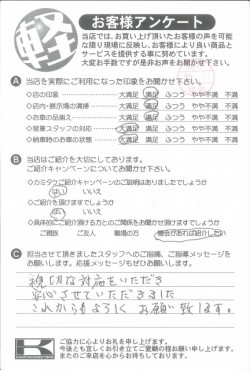 軽
お客様アンケート
当店では、お買い上げ頂いたお客様の声を可能
な限り現場に反映し、お客様により良い商品と
サービスを提供する事に努めています。
大変お手数ですが是非お声をお聞かせ下さい。
A 当店を実際にご利用になった印象をお聞かせ下さい。
◇店の印象 大満足 満足 ふつう やや不満 不満
◇店内・展示場の清掃 大満足 満足 ふつう やや不満 不満
◇お車の品揃え 大満足 満足 ふつう やや不満 不満
◇営業スタッフの対応 大満足 満足 ふつう やや不満 不満
◇納車時のお車の状態 大満足 満足 ふつう やや不満 不満
B 当店はご紹介を大切にしております。
ご紹介キャンペーンについてお聞かせ下さい。
◇カミタケご紹介キャンペーンのご説明はありましたでしょうか
はい いいえ
◇ご紹介を頂けますでしょうか
はい いいえ
◇具体的にご紹介頂ける方とのご関係をお聞かせ頂けますでしょうか
ご親族 ご友人 職場の方 機会があれば紹介したい
C 担当させて頂きましたスタッフへのご指摘、ご指導メッセージを
お願いします。応援メッセージもぜひお願いします。
親切な対応をいただき
安心させていただきました
これからもよろしくお願い致します。
K
ご協力に心よりお礼を申し上げます。
今後とも宜しくお引き立てご愛顧の程お願い申し上げます。
またのご来店を心からお待ちしております。